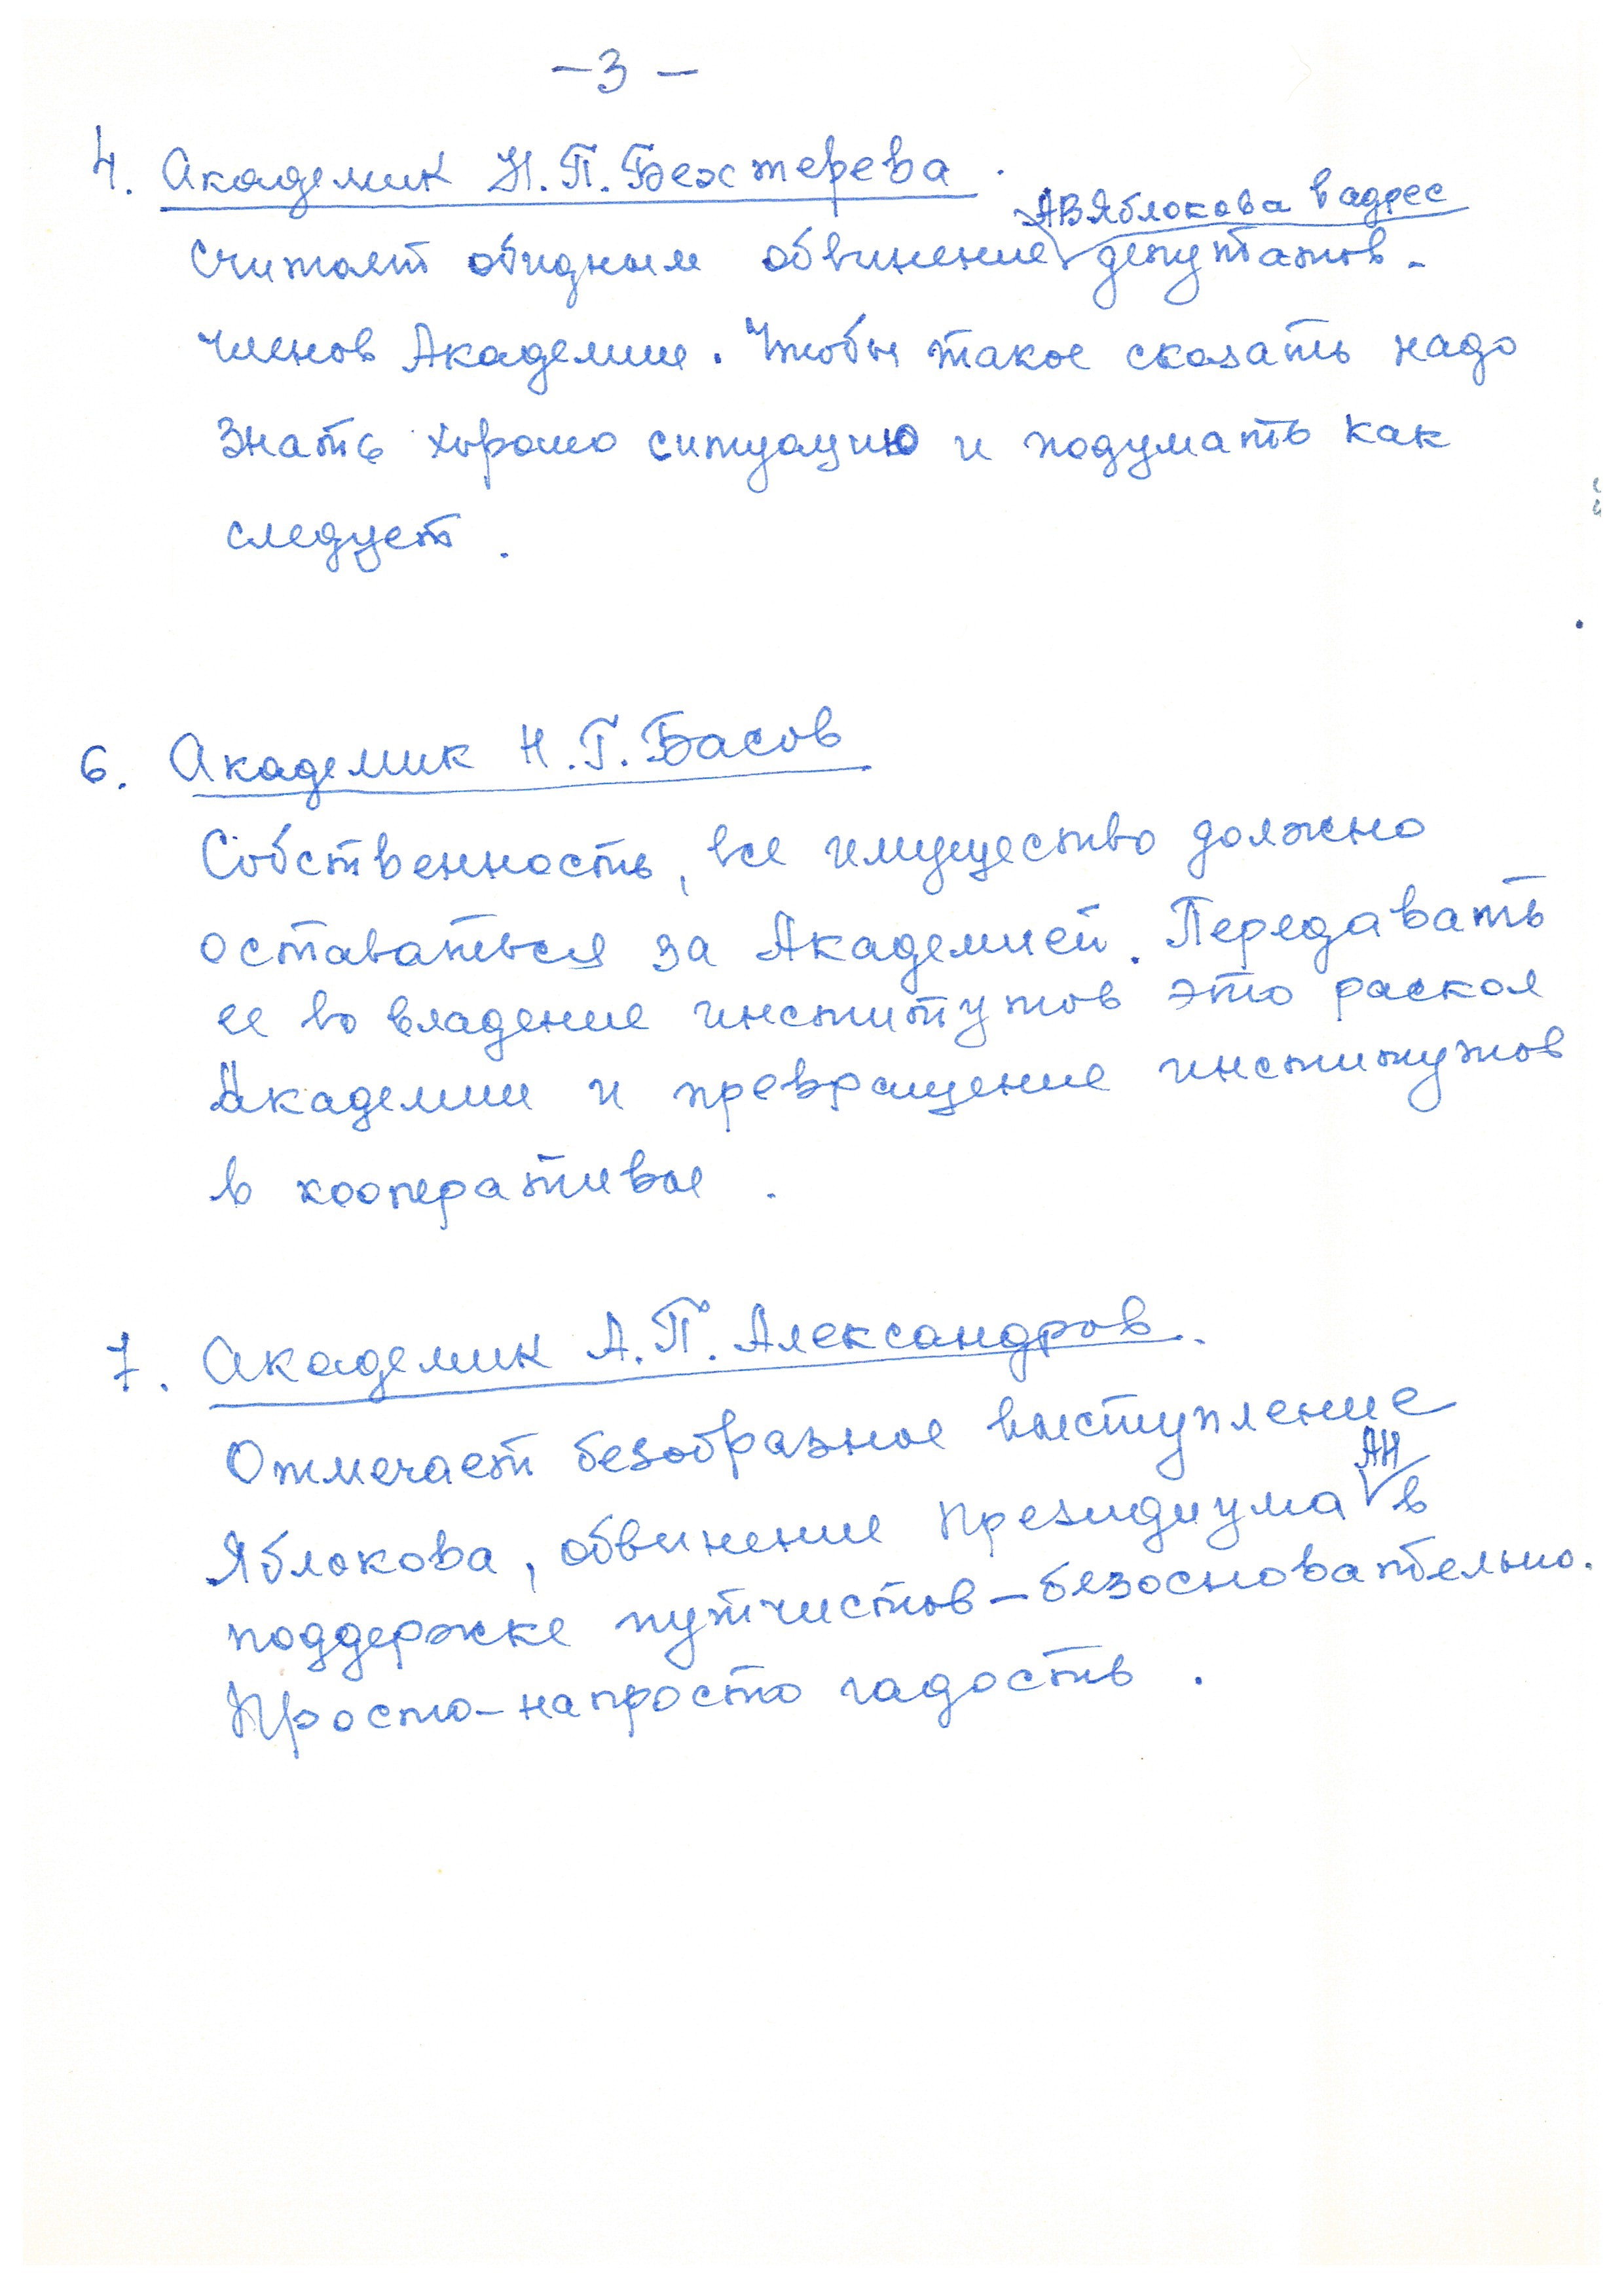 – 3 –
4. Академик Н.П. Бехтерева.
АВЯблокова в адрес
Считает обидным обвинение депутатов-
членов Академии. Чтобы такое сказать надо
знать хорошо ситуацию и подумать как
следует.
6. Академик Н.Г. Басов
Собственность, все имущество должно
оставаться за Академией. Передавать
ее во владение институтов это раскол
Академии и превращение институтов
в кооперативы.
7. Академик А.П. Александров.
Отмечает безобразное выступление
АН
Яблокова, обвинение Президиума в
поддержке путчистов – безосновательно.
Просто-напросто гадость.